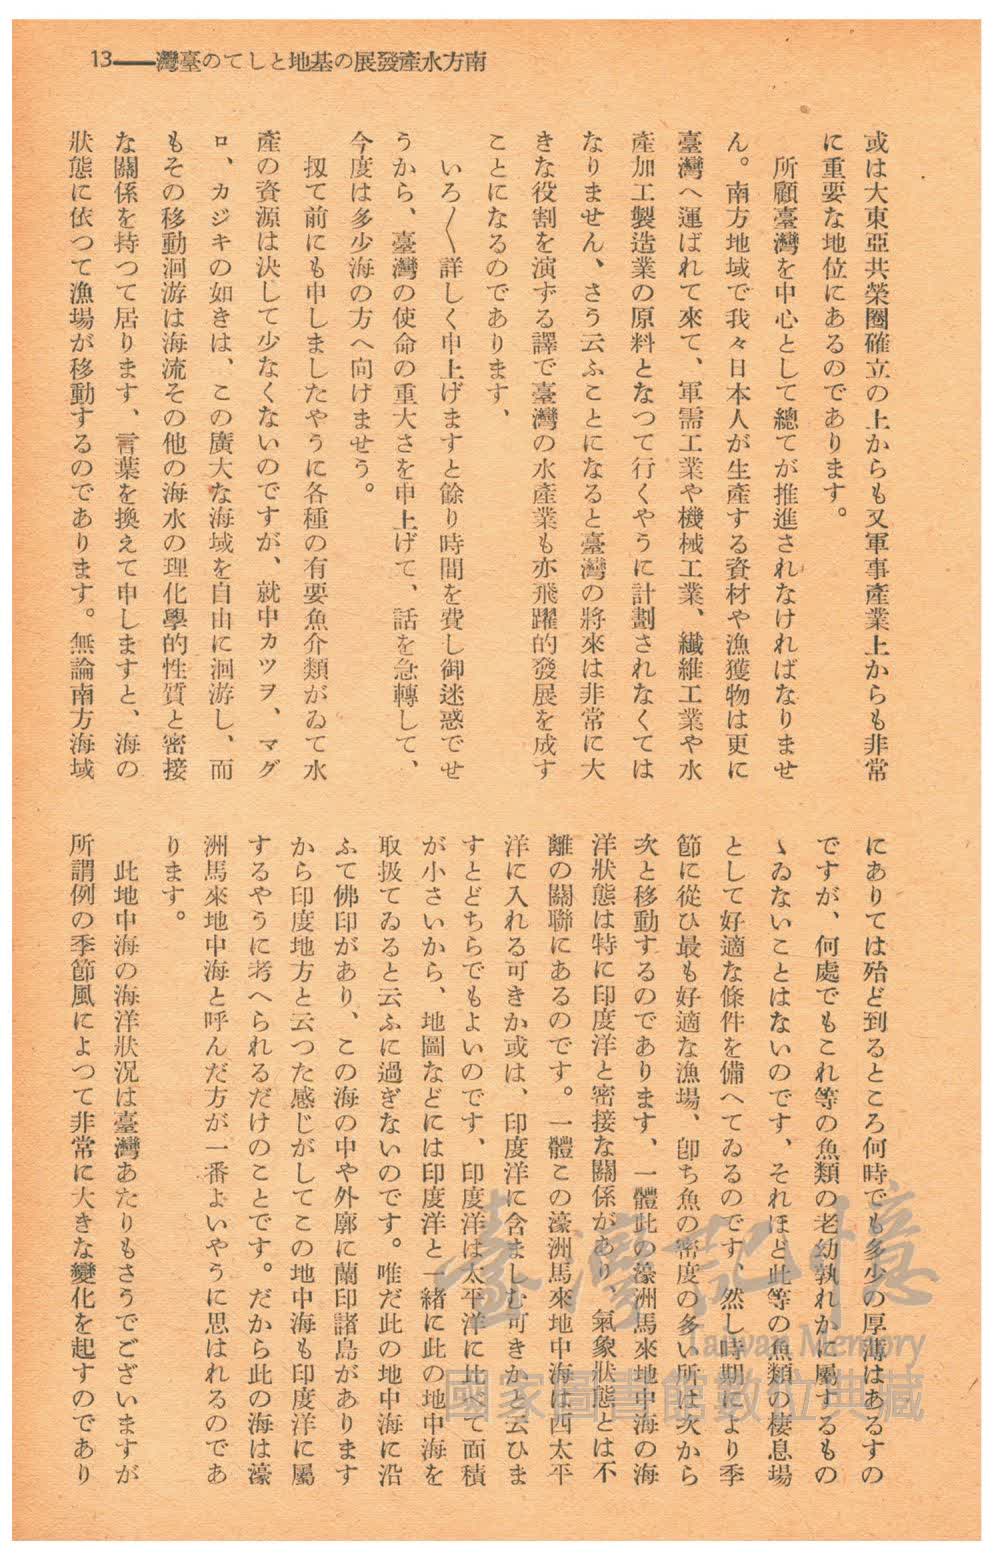 南方水產發展の基地としての臺灣――13
或は大東亞共榮圈確立の上からも又軍事產業上からも非常
に重要な地位にあるのであります。
所顧臺灣を中心として總てが推進されなければなりませ
ん。南方地域で我々日本人が生產する資材や漁獲物は更に
臺灣へ運ばれて來て、軍需工業や機械工業、纖維工業や水
產加工製造業の原料となつて行くやうに計劃されなくては
なりません、さう云ふことになると臺灣の將來は非常に大
きな役割を演ずる譯で臺灣の水產業も亦飛躍的發展を成す
ことになるのであります、
いろ〳〵詳しく申上げますと餘り時間を費し御迷惑でせ
うから、臺灣の使命の重大さを申上げて、話を急轉して、
今度は多少海の方へ向けませう。
扨て前にも申しましたやうに各種の有要魚介類がゐて水
產の資源は決して少なくないのですが、就中カツヲ、マグ
ロ、カジキの如きは、この廣大な海域を自由に洄游し、而
もその移動洄游は海流その他の海水の理化學的性質と密接
な關係を持つて居ります、言葉を換えて申しますと、海の
狀態に依つて漁場が移動するのであります。無論南方海域
にありては殆ど到るところ何時でも多少の厚薄はあるすの
ですが、何處でもこれ等の魚類の老幼孰れかに屬するもの
ゝゐないことはないのです、それほど此等の魚類の棲息場
として好適な條件を備へてゐるのです、然し時期により季
節に從ひ最も好適な漁場、卽ち魚の密度の多い所は次から
次と移動するのであります、一體此の濠洲馬來地中海の海
洋狀態は特に印度洋と密接な關係があり、氣象狀態とは不
離の關聯にあるのです。一體この濠洲馬來地中海は西太平
洋に入れる可きか或は、印度洋に含ましむ可きかと云ひま
すとどちらでもよいのです、印度洋は太平洋に比べて面積
が小さいから、地圖などには印度洋と一緒に此の地中海を
取扱てゐると云ふに過ぎないのです。唯だ此の地中海に沿
ふて佛印があり、この海の中や外廓に蘭印諸島があります
から印度地方と云つた感じがしてこの地中海も印度洋に屬
するやうに考へられるだけのことです。だから此の海は濠
洲馬來地中海と呼んだ方が一番よいやうに思はれるのであ
ります。
此地中海の海洋狀況は臺灣あたりもさうでございますが
所謂例の季節風によつて非常に大きな變化を起すのであり
臺灣記憶
Taiwan Memory
國家圖書館數位典藏